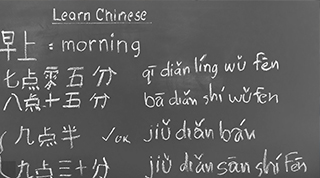 Learn Chinese
早上 : morning
七点零五分 qī diǎn líng wǔ fēn
八点十五分 bā diǎn shí wǔ fēn
九点半 ✓OK jiǔ diǎn bàn
九点三十分 jiǔ diǎn sān shí fēn